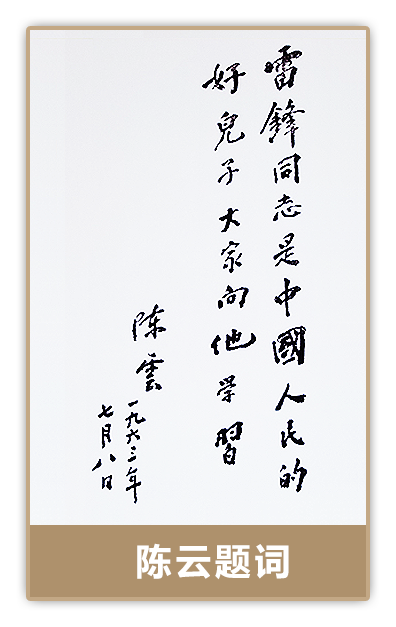 雷鋒同志是中國人民的
好兒子大家向他学習
陈雲
一九六三年
七月八日
陈云题词